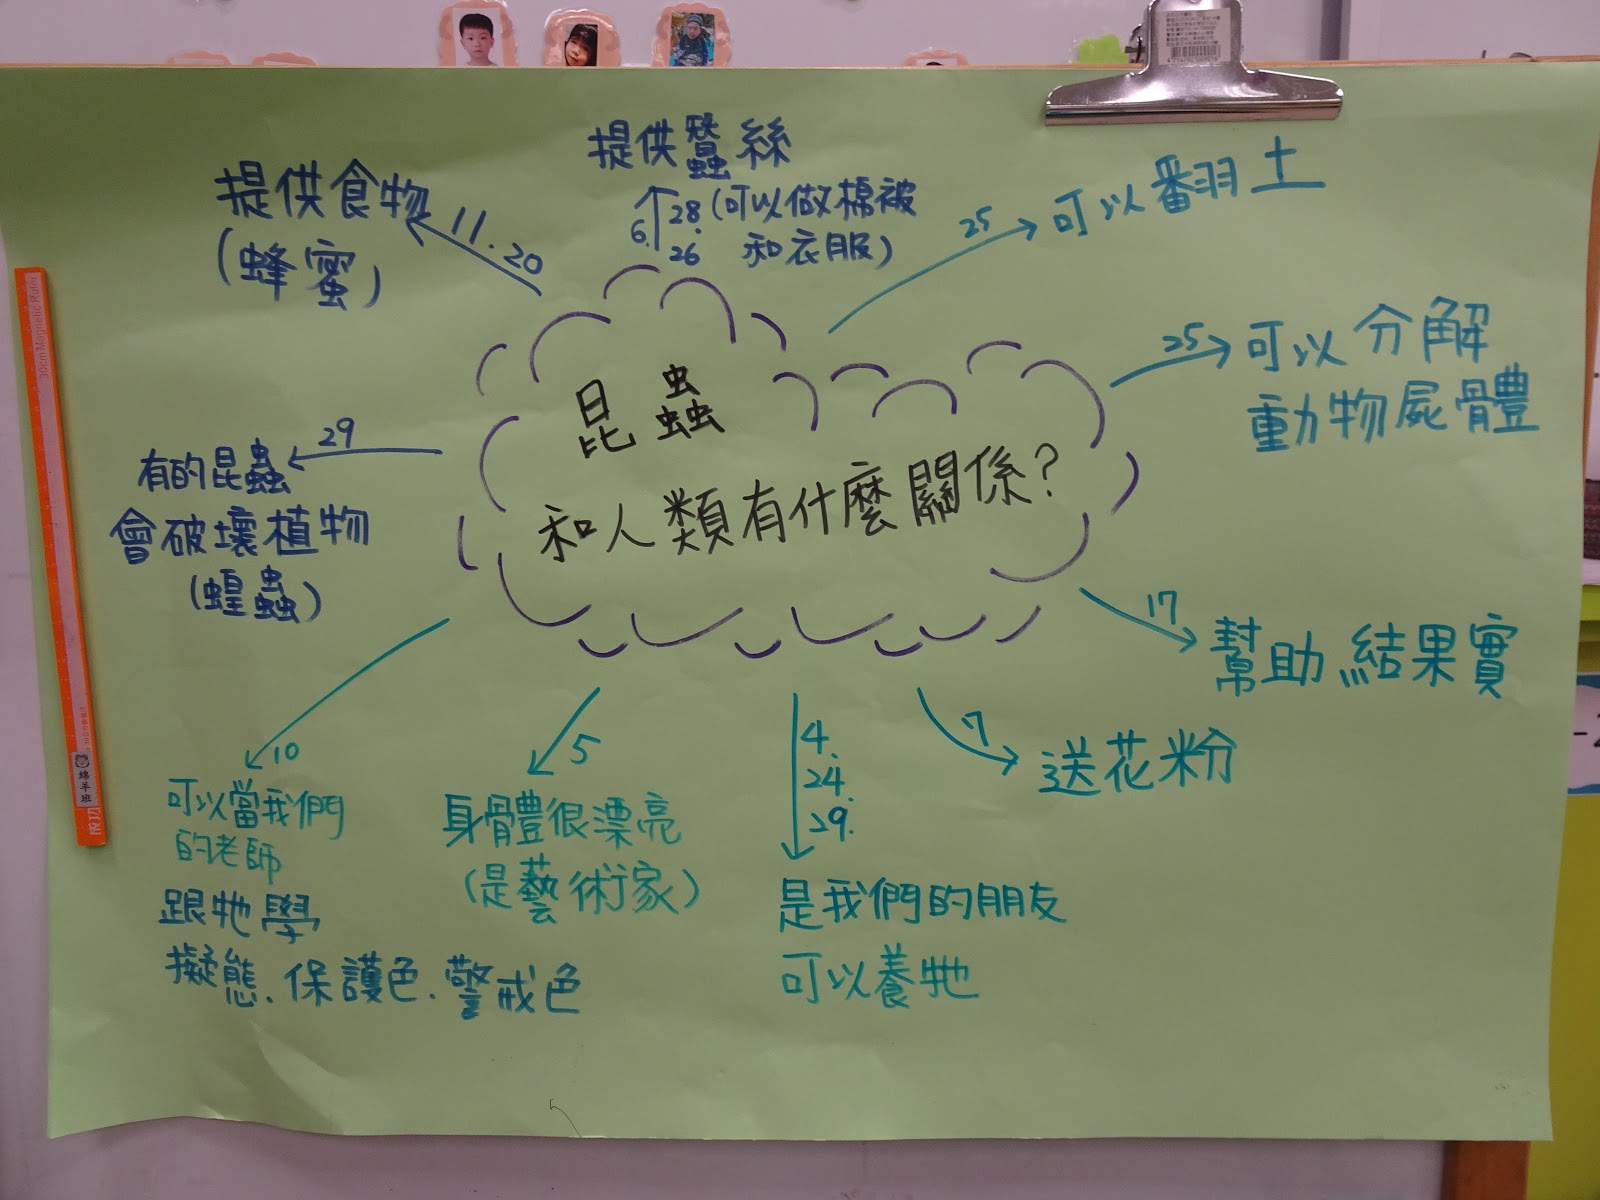 提供蠶絲
6. 28.
26
(可以做棉被
和衣服)
25
可以翻土
提供食物
(蜂蜜)
11.20
25
可以分解
動物屍體
昆蟲
和人類有什麼關係?
29
有的昆蟲
會破壞植物
(蝗蟲)
17
幫助結果實
17
送花粉
4.
24.
29.
是我們的朋友
可以養牠
5
身體很漂亮
(是藝術家)
10
可以當我們
的老師
跟牠學
擬態.保護色.警戒色
30cm Magnetic Ruler
綿羊班